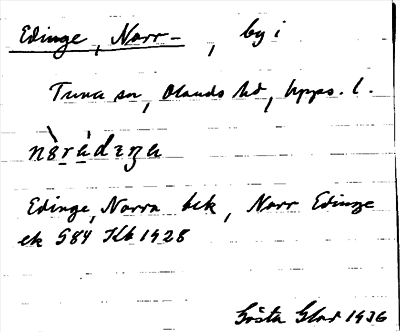 Edinge, Norr- , by i
Tuna sn, Olands hd, Upps. l.
Edinge, Norra bek, Norr Edinge
ek 584 Kb 1928
Gösta Glad 1936